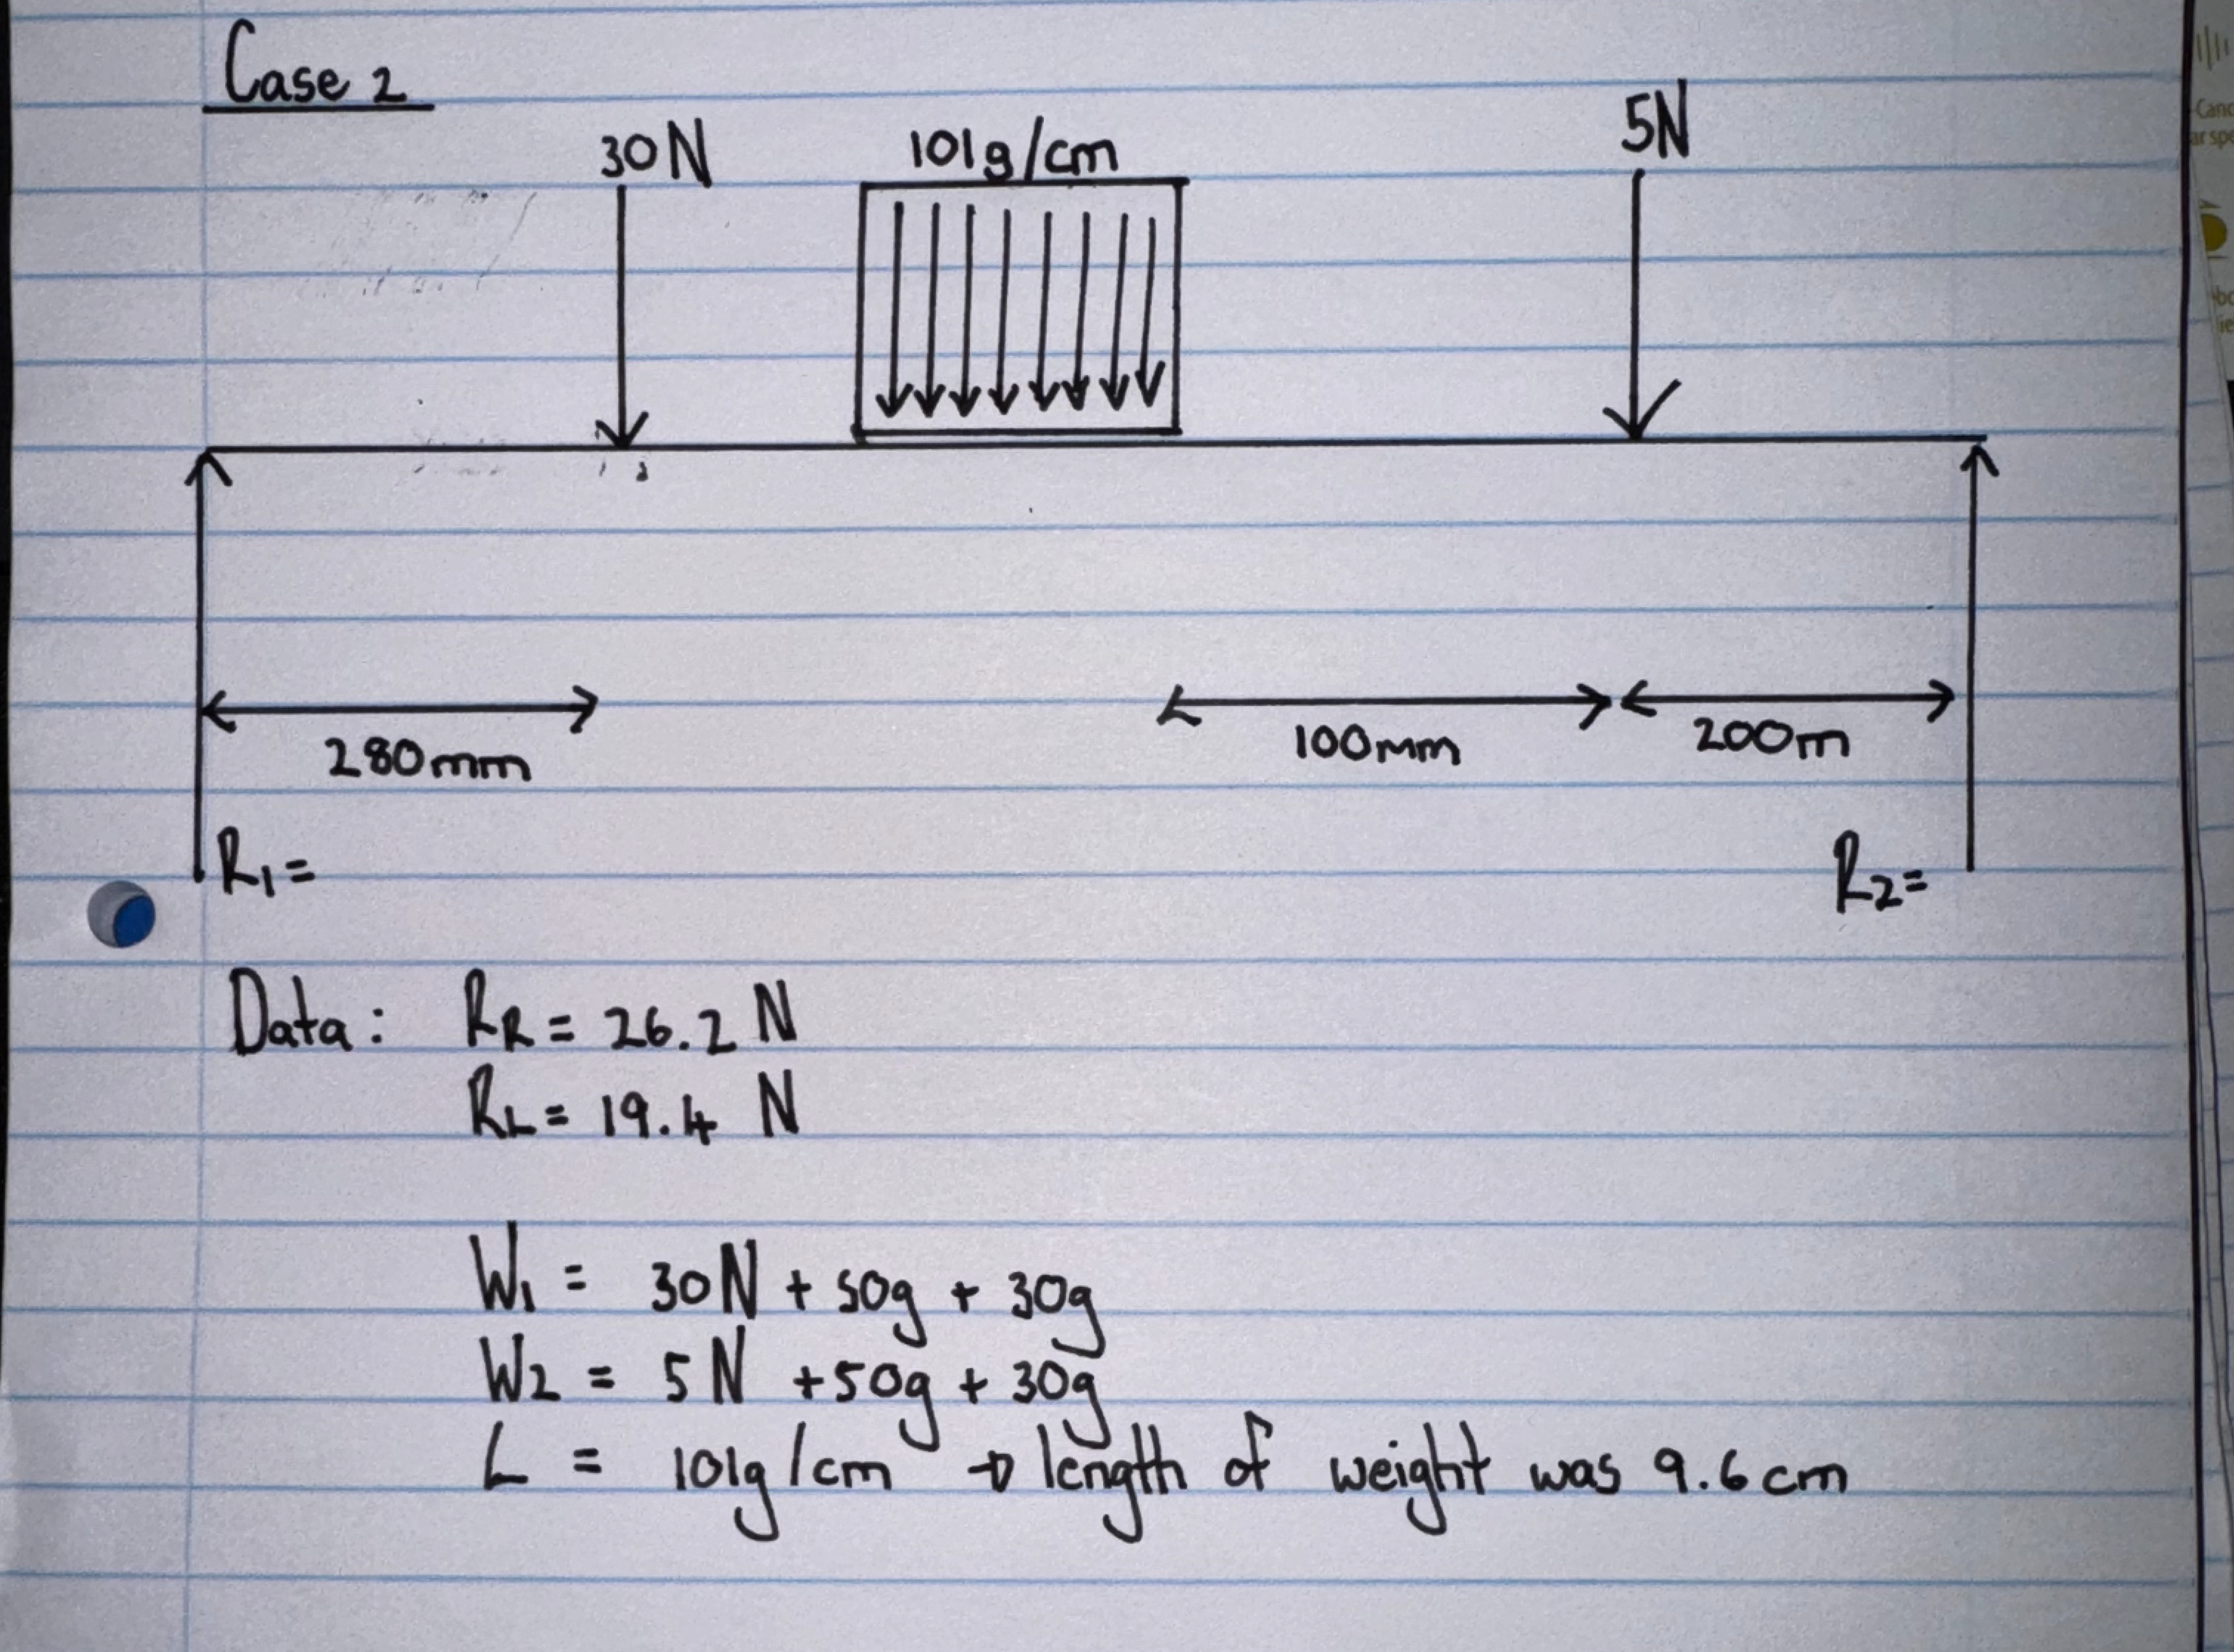 Case 2
30N 101g/cm 5N
280mm 100mm 200m
R1= R2=
Data: RR = 26.2 N
RL = 19.4 N
W1 = 30N + 50g + 30g
W2 = 5N + 50g + 30g
L = 101g/cm → length of weight was 9.6cm